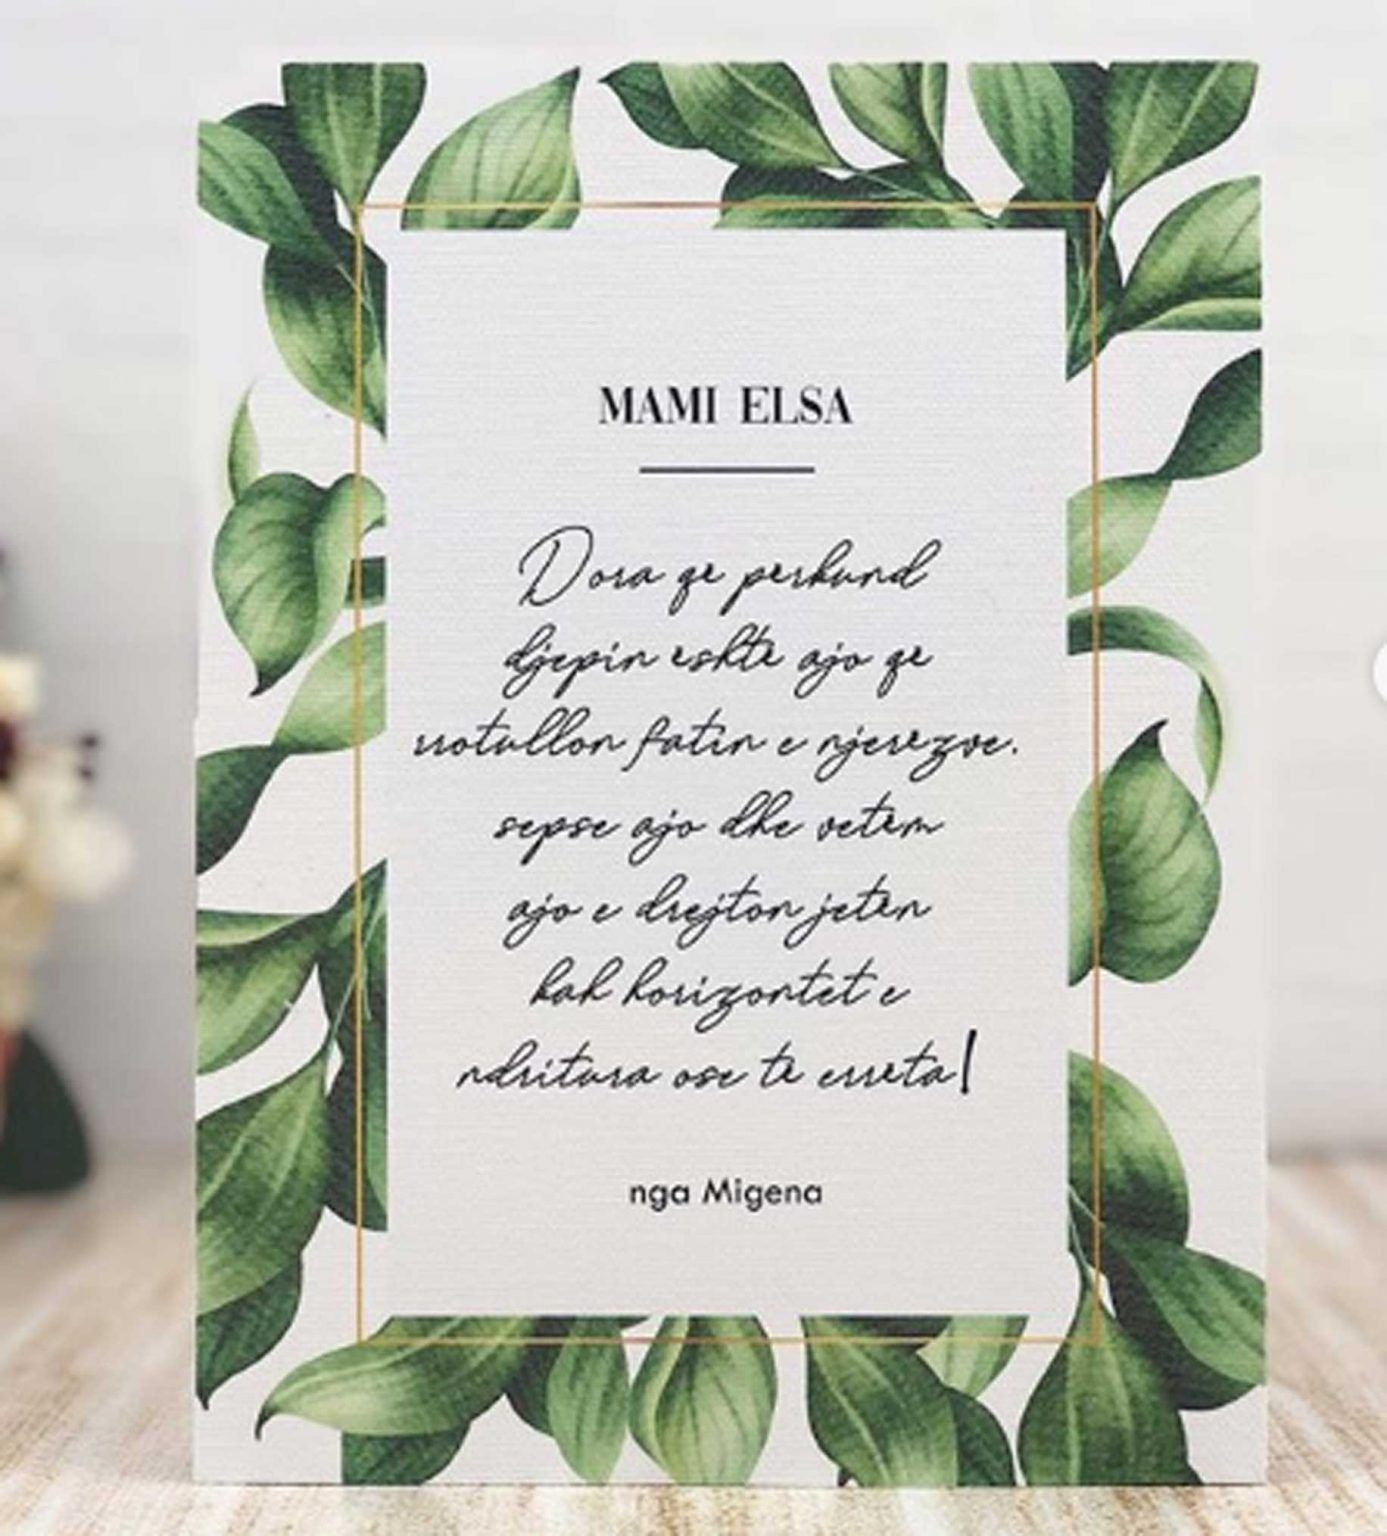 MAMI ELSA
Dora qe perkund
djepin eshte ajo qe
rrotullon fatin e njerezve.
sepse ajo dhe vetem
ajo e drejton jeten
kah horizontet e
ndritura ose te erreta!
nga Migena